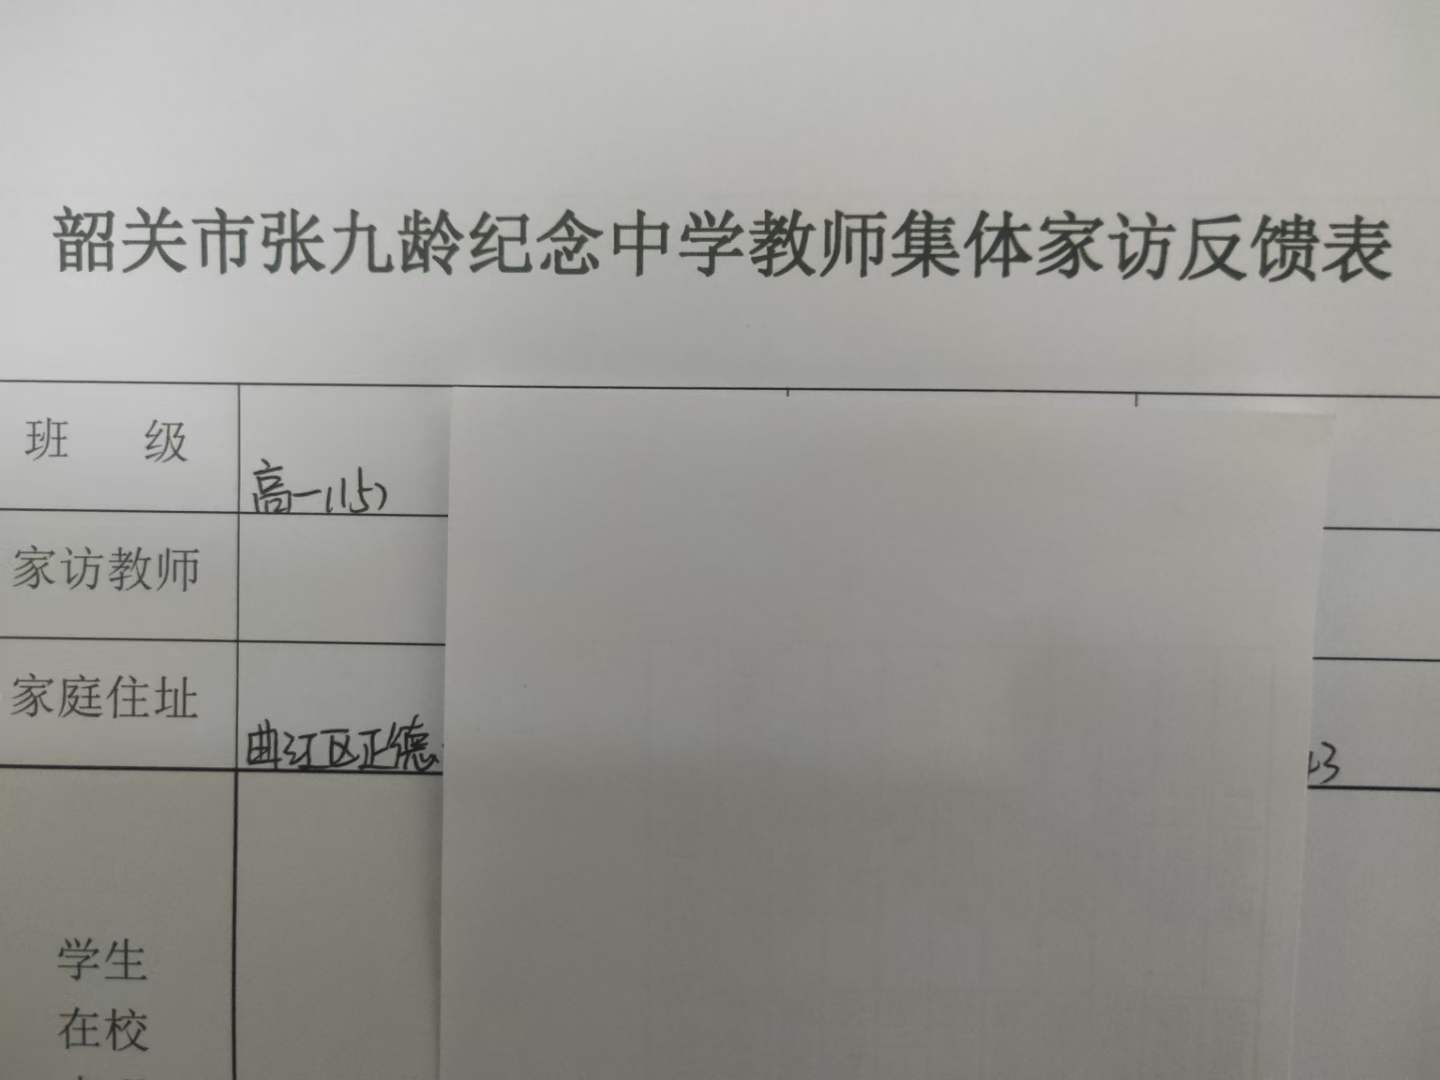 韶关市张九龄纪念中学教师集体家访反馈表
班 级 高一(15)
家访教师
家庭住址 曲江区正德 3
学生
在校